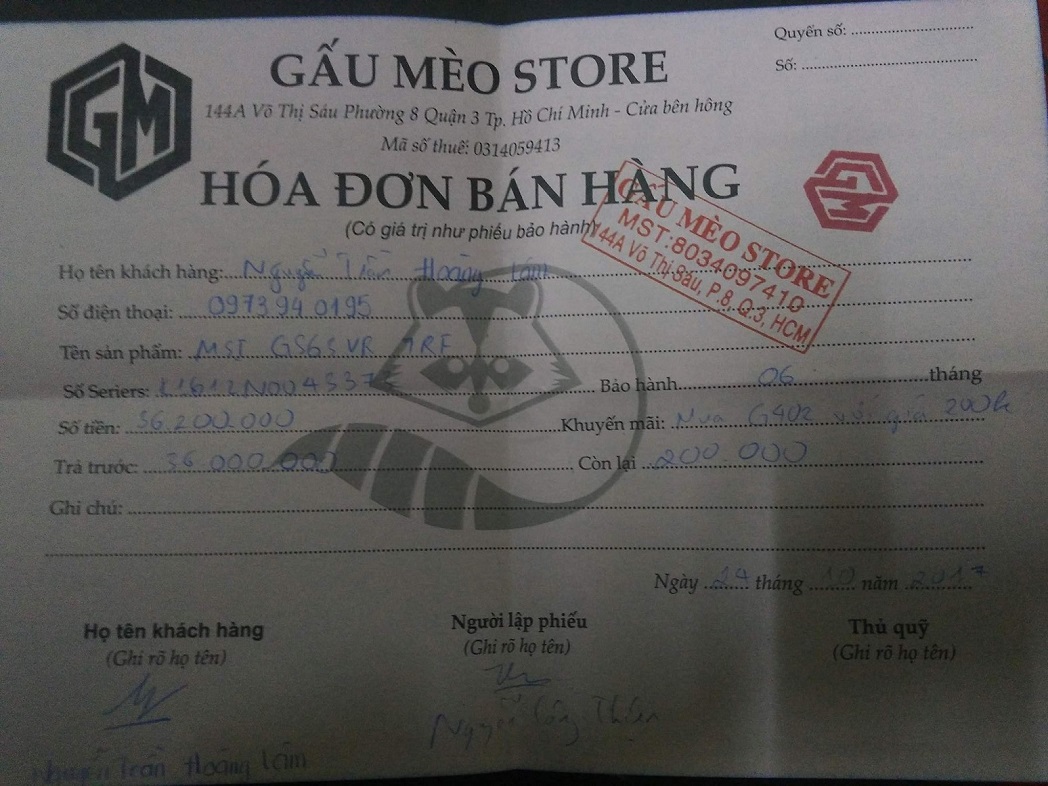 Quyển số: ..............................
Số: ..............................
GM
GẤU MÈO STORE
144A Võ Thị Sáu Phường 8 Quận 3 Tp. Hồ Chí Minh - Cửa bên hông
Mã số thuế: 0314059413
HÓA ĐƠN BÁN HÀNG
(Có giá trị như phiếu bảo hành)
GẤU MÈO STORE
MST:8034097410
144A Võ Thị Sáu, P.8, Q.3, HCM
Họ tên khách hàng: Nguyễn Trần Hoàng Lâm
Số điện thoại: 0973940195
Tên sản phẩm: MSI GS63VR 7RF
Số Seriers: Bảo hành 06 tháng
Số tiền: 36.200.000 Khuyến mãi: Mua G402 với giá 200k
Trả trước: 36.000.000 Còn lại 200.000
Ghi chú:
Ngày 29 tháng 10 năm 2017
Họ tên khách hàng Người lập phiếu Thủ quỹ
(Ghi rõ họ tên) (Ghi rõ họ tên) (Ghi rõ họ tên)
Nguyễn Công
Nguyễn Trần Hoàng Lâm